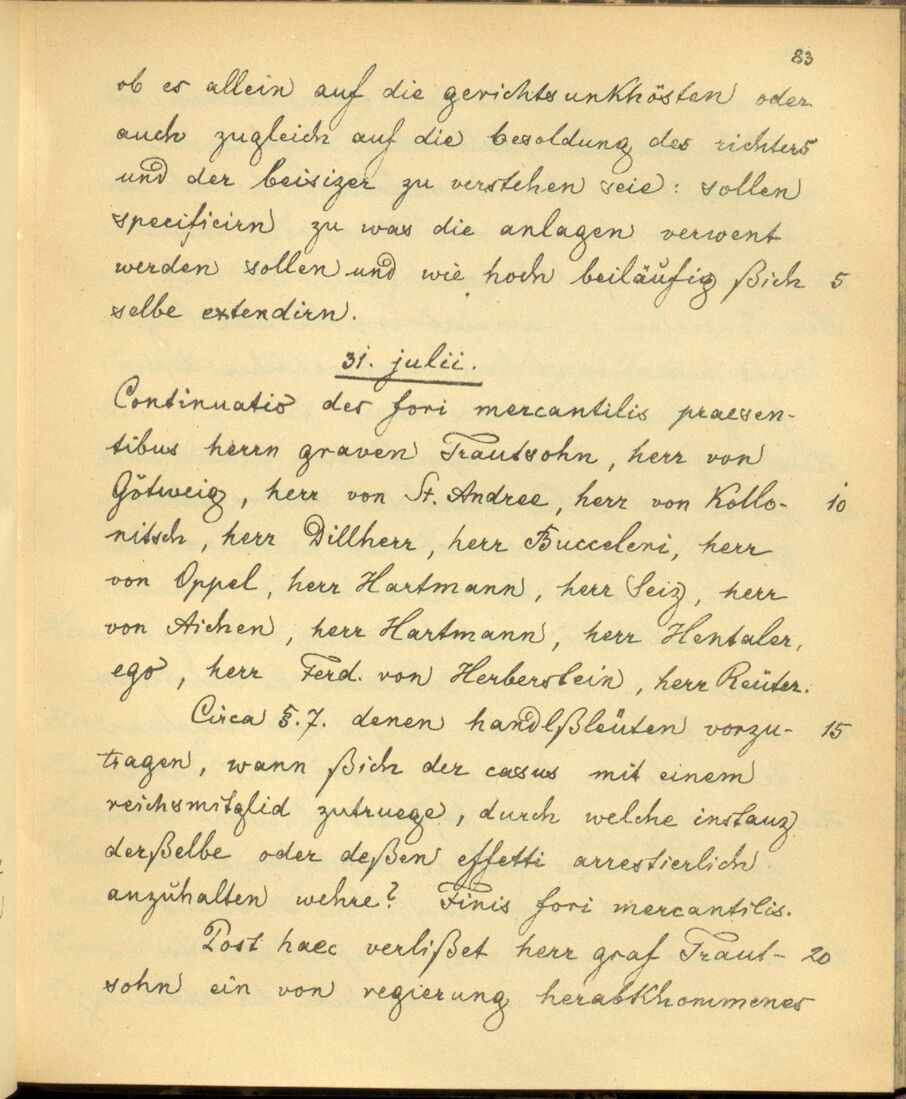 83
ob es allein auf die gerichtsunkhösten oder
auch zugleich auf die besoldung des richters
und der beisizer zu verstehen seie: sollen
specificirn zu was die anlagen verwent
werden sollen und wie hoch beiläŭfig ßich 5
selbe extendirn.
31. julii.
Continuatio des fori mercantilis praesen-
tibus herrn graven Trautsohn, herr von
Götweig, herr von St. Andree, herr von Kollo- 10
nitsch, herr Dillherr, herr Bucceleni, herr
von Oppel, herr Hartmann, herr Seiz, herr
von Aichen, herr Hartmann, herr Hentaler,
ego, herr Ferd. von Herberstein, herr Reüter.
Circa §. 7. denen handlßleüten vorzu- 15
tragen, wann ßich der casus mit einem
reichsmitglid zutruege, durch welche instanz
derßelbe oder deßen effetti arrestierlich
anzŭhalten wehre? Finis fori mercantilis.
Post haec verlißet herr graf Traut- 20
sohn ein von regierung herabkhommenes